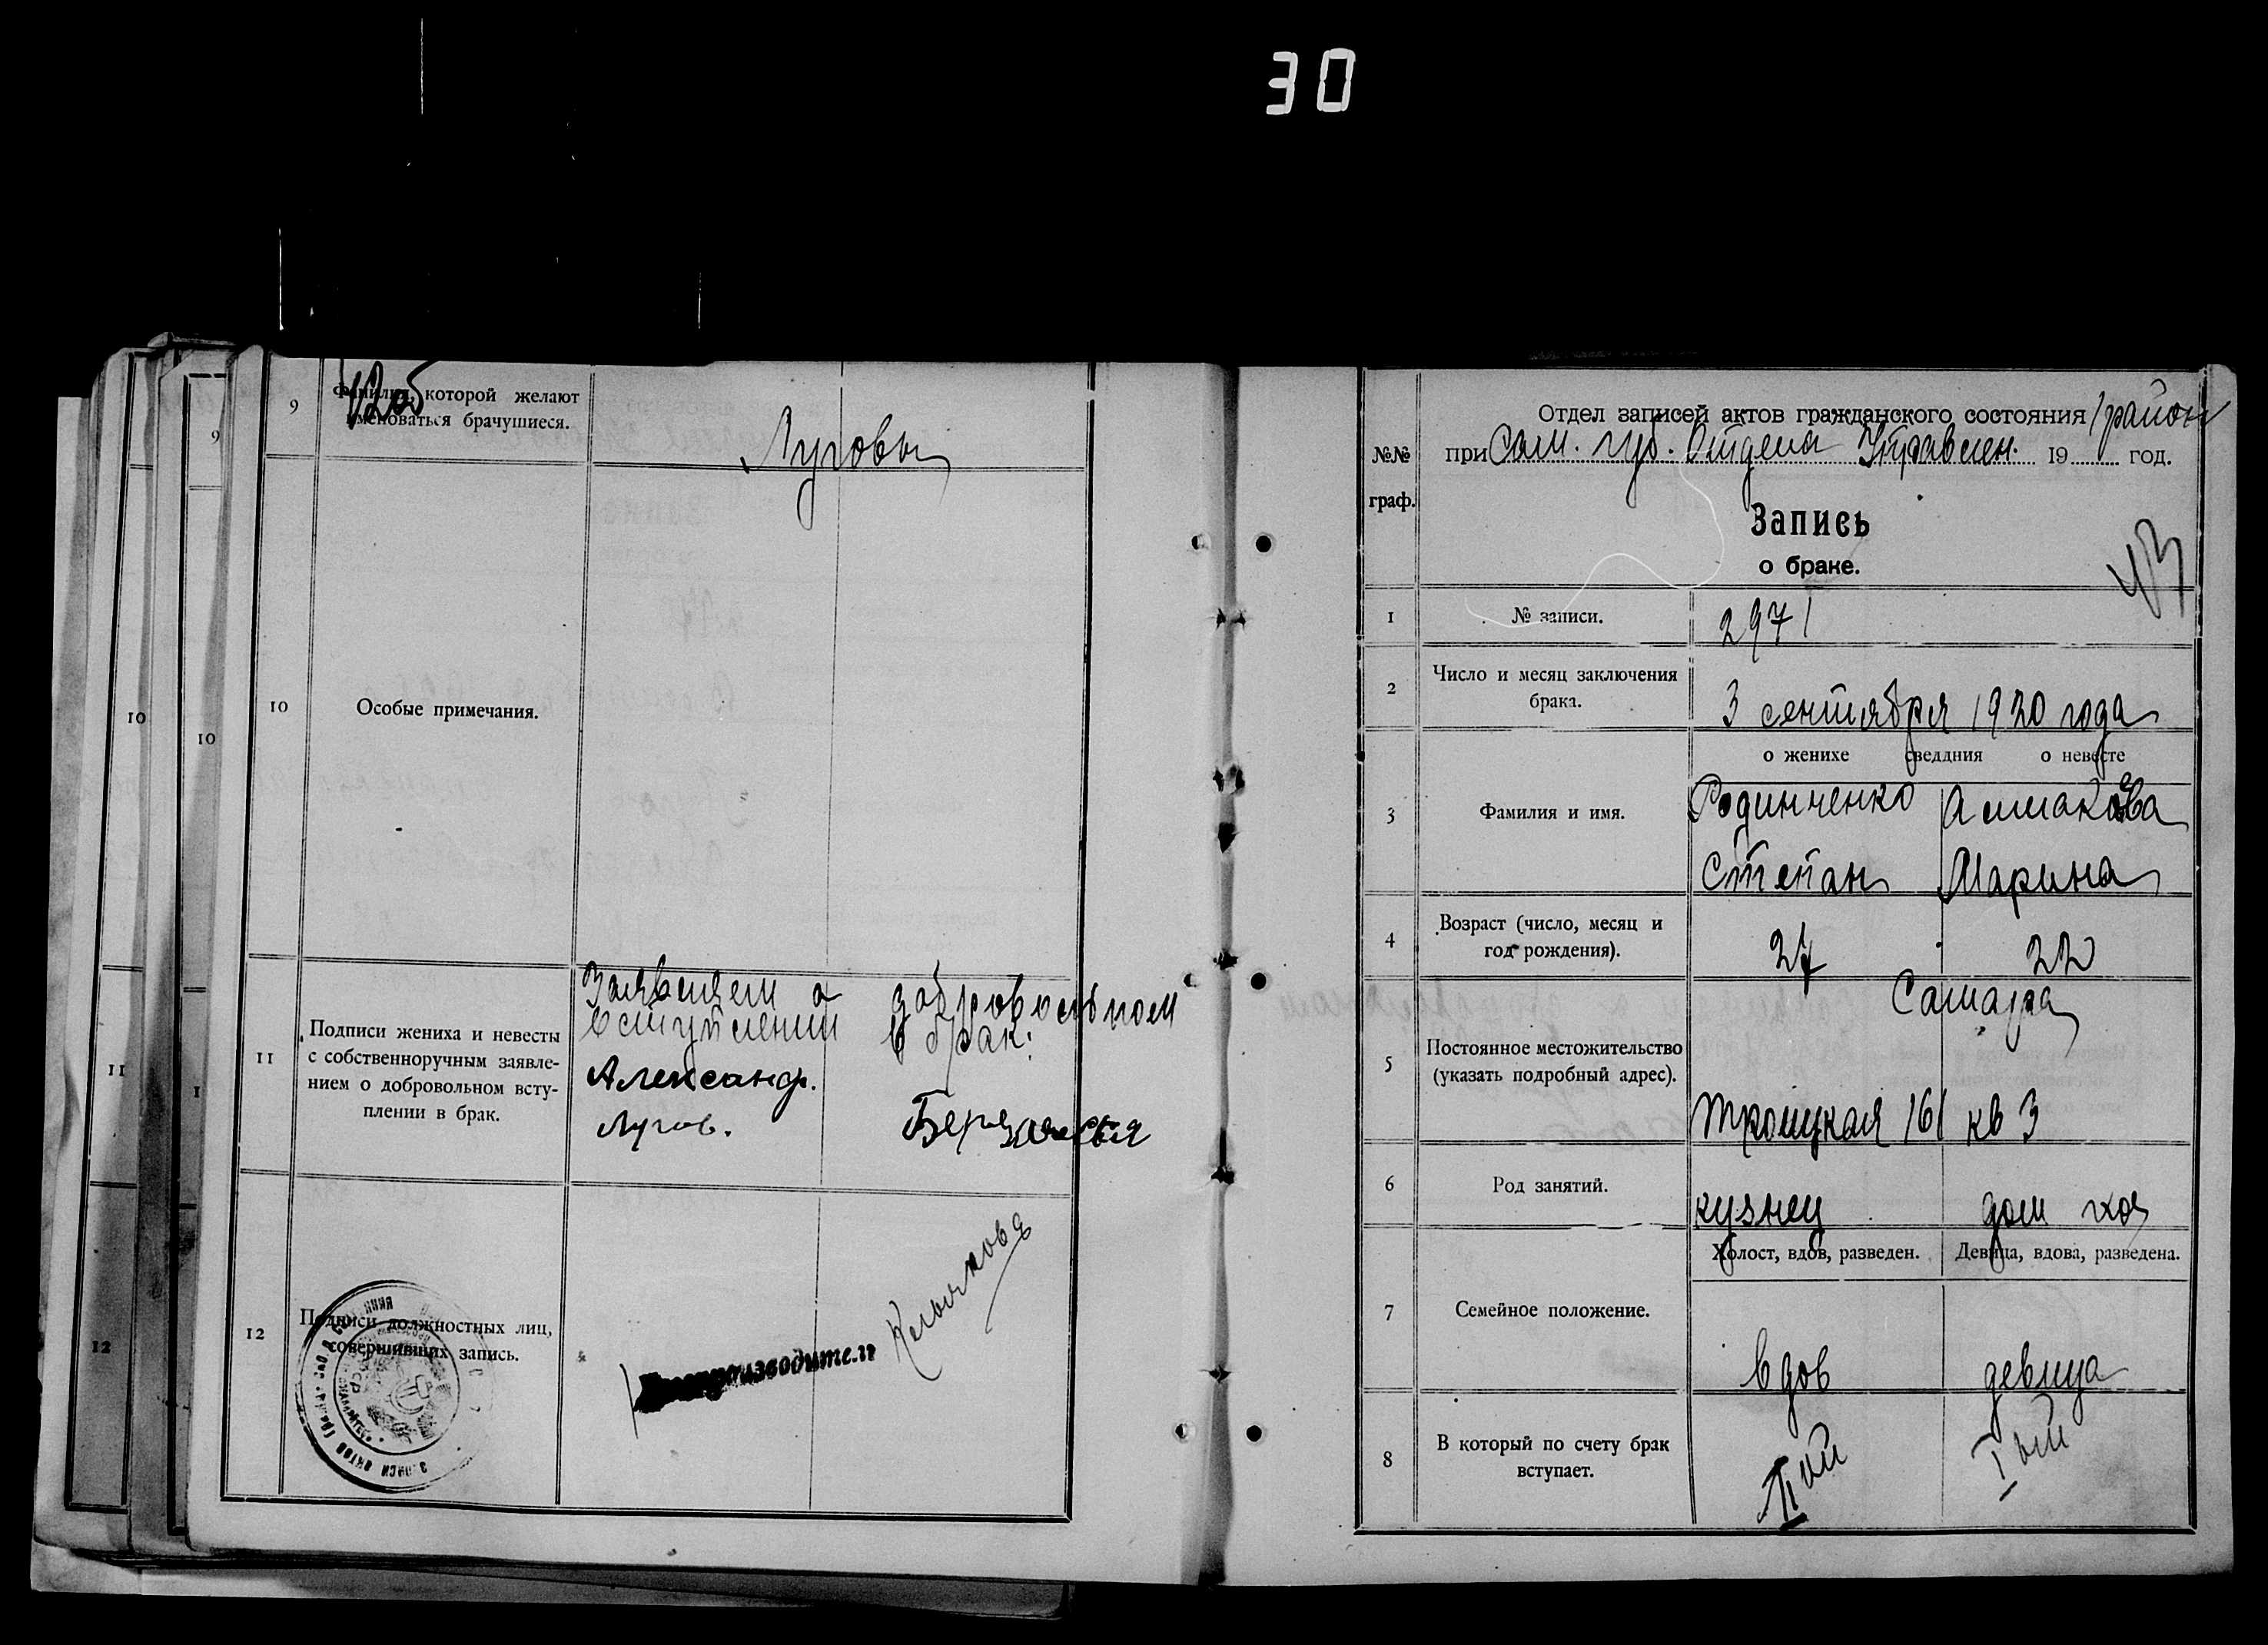 30
9
Фамилия, которой желают
именоваться брачущиеся.
Луговы
10
Особые примечания.
11
Подписи жениха и невесты
с собственноручным заявле-
нием о добровольном всту-
плении в брак.
Заявляем о добровольном
вступлении в брак:
Александр.
Лугов.
12
Подписи должностных лиц,
совершивших запись.
Делопроизводитель
9
10
11
12
10
№№
граф.
Отдел записей актов гражданского состояния 1 район
при Сам. губ. Отдела Управлен. 19 год.
Запись
о браке.
43
1
№ записи.
2971
2
Число и месяц заключения
брака.
3 сентября 1920 года
о женихе сведдния о невесте
3
Фамилия и имя.
Родинченко
Степан Марина
4
Возраст (число, месяц и
год рождения).
27 22
5
Постоянное местожительство
(указать подробный адрес).
Самара
Троицкая 161 кв 3
6
Род занятий.
кузнец дом хоз
7
Семейное положение.
Холост, вдов, разведен. Девица, вдова, разведена.
вдов девица
8
В который по счету брак
вступает.
II ой I ый